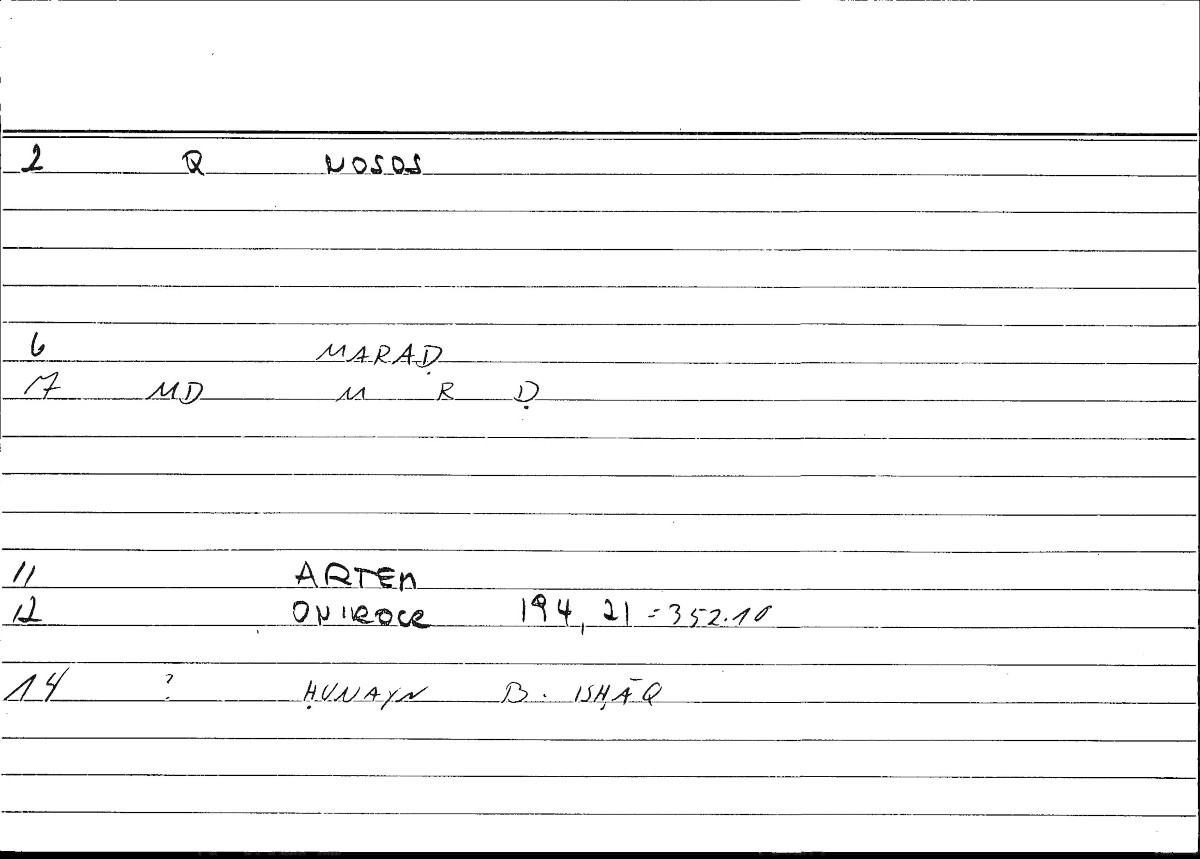 2 Q NOSOS
6 MARAḌ
17 MD M R Ḍ
11 ARTEM
12 ONIROCR 194, 21 = 352.10
14 ? ḤUNAYN B. ISḤĀQ